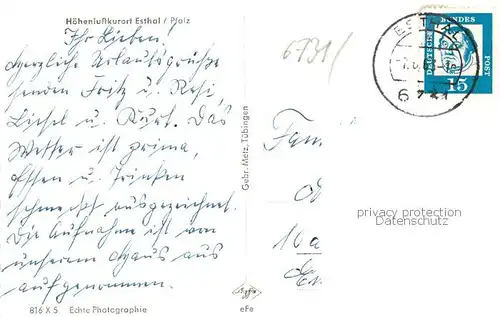 Höhenluftkurort Esthal / Pfalz
Ihr Lieben!
Herzliche Urlaubsgrüße
senden Fritz u. Resi,
Liesel u. Kurt. Das
Wetter ist prima,
Essen u. Trinken
schmeckt ausgezeichnet.
Die Aufnahme ist von
unserem Haus aus
aufgenommen.
816 X 5 Echte Photographie
Gebr. Metz, Tübingen
eFe
6731/
ESTHAL
DEUTSCHE
BUNDES
POST
15
Fam
10a
privacy protection
data